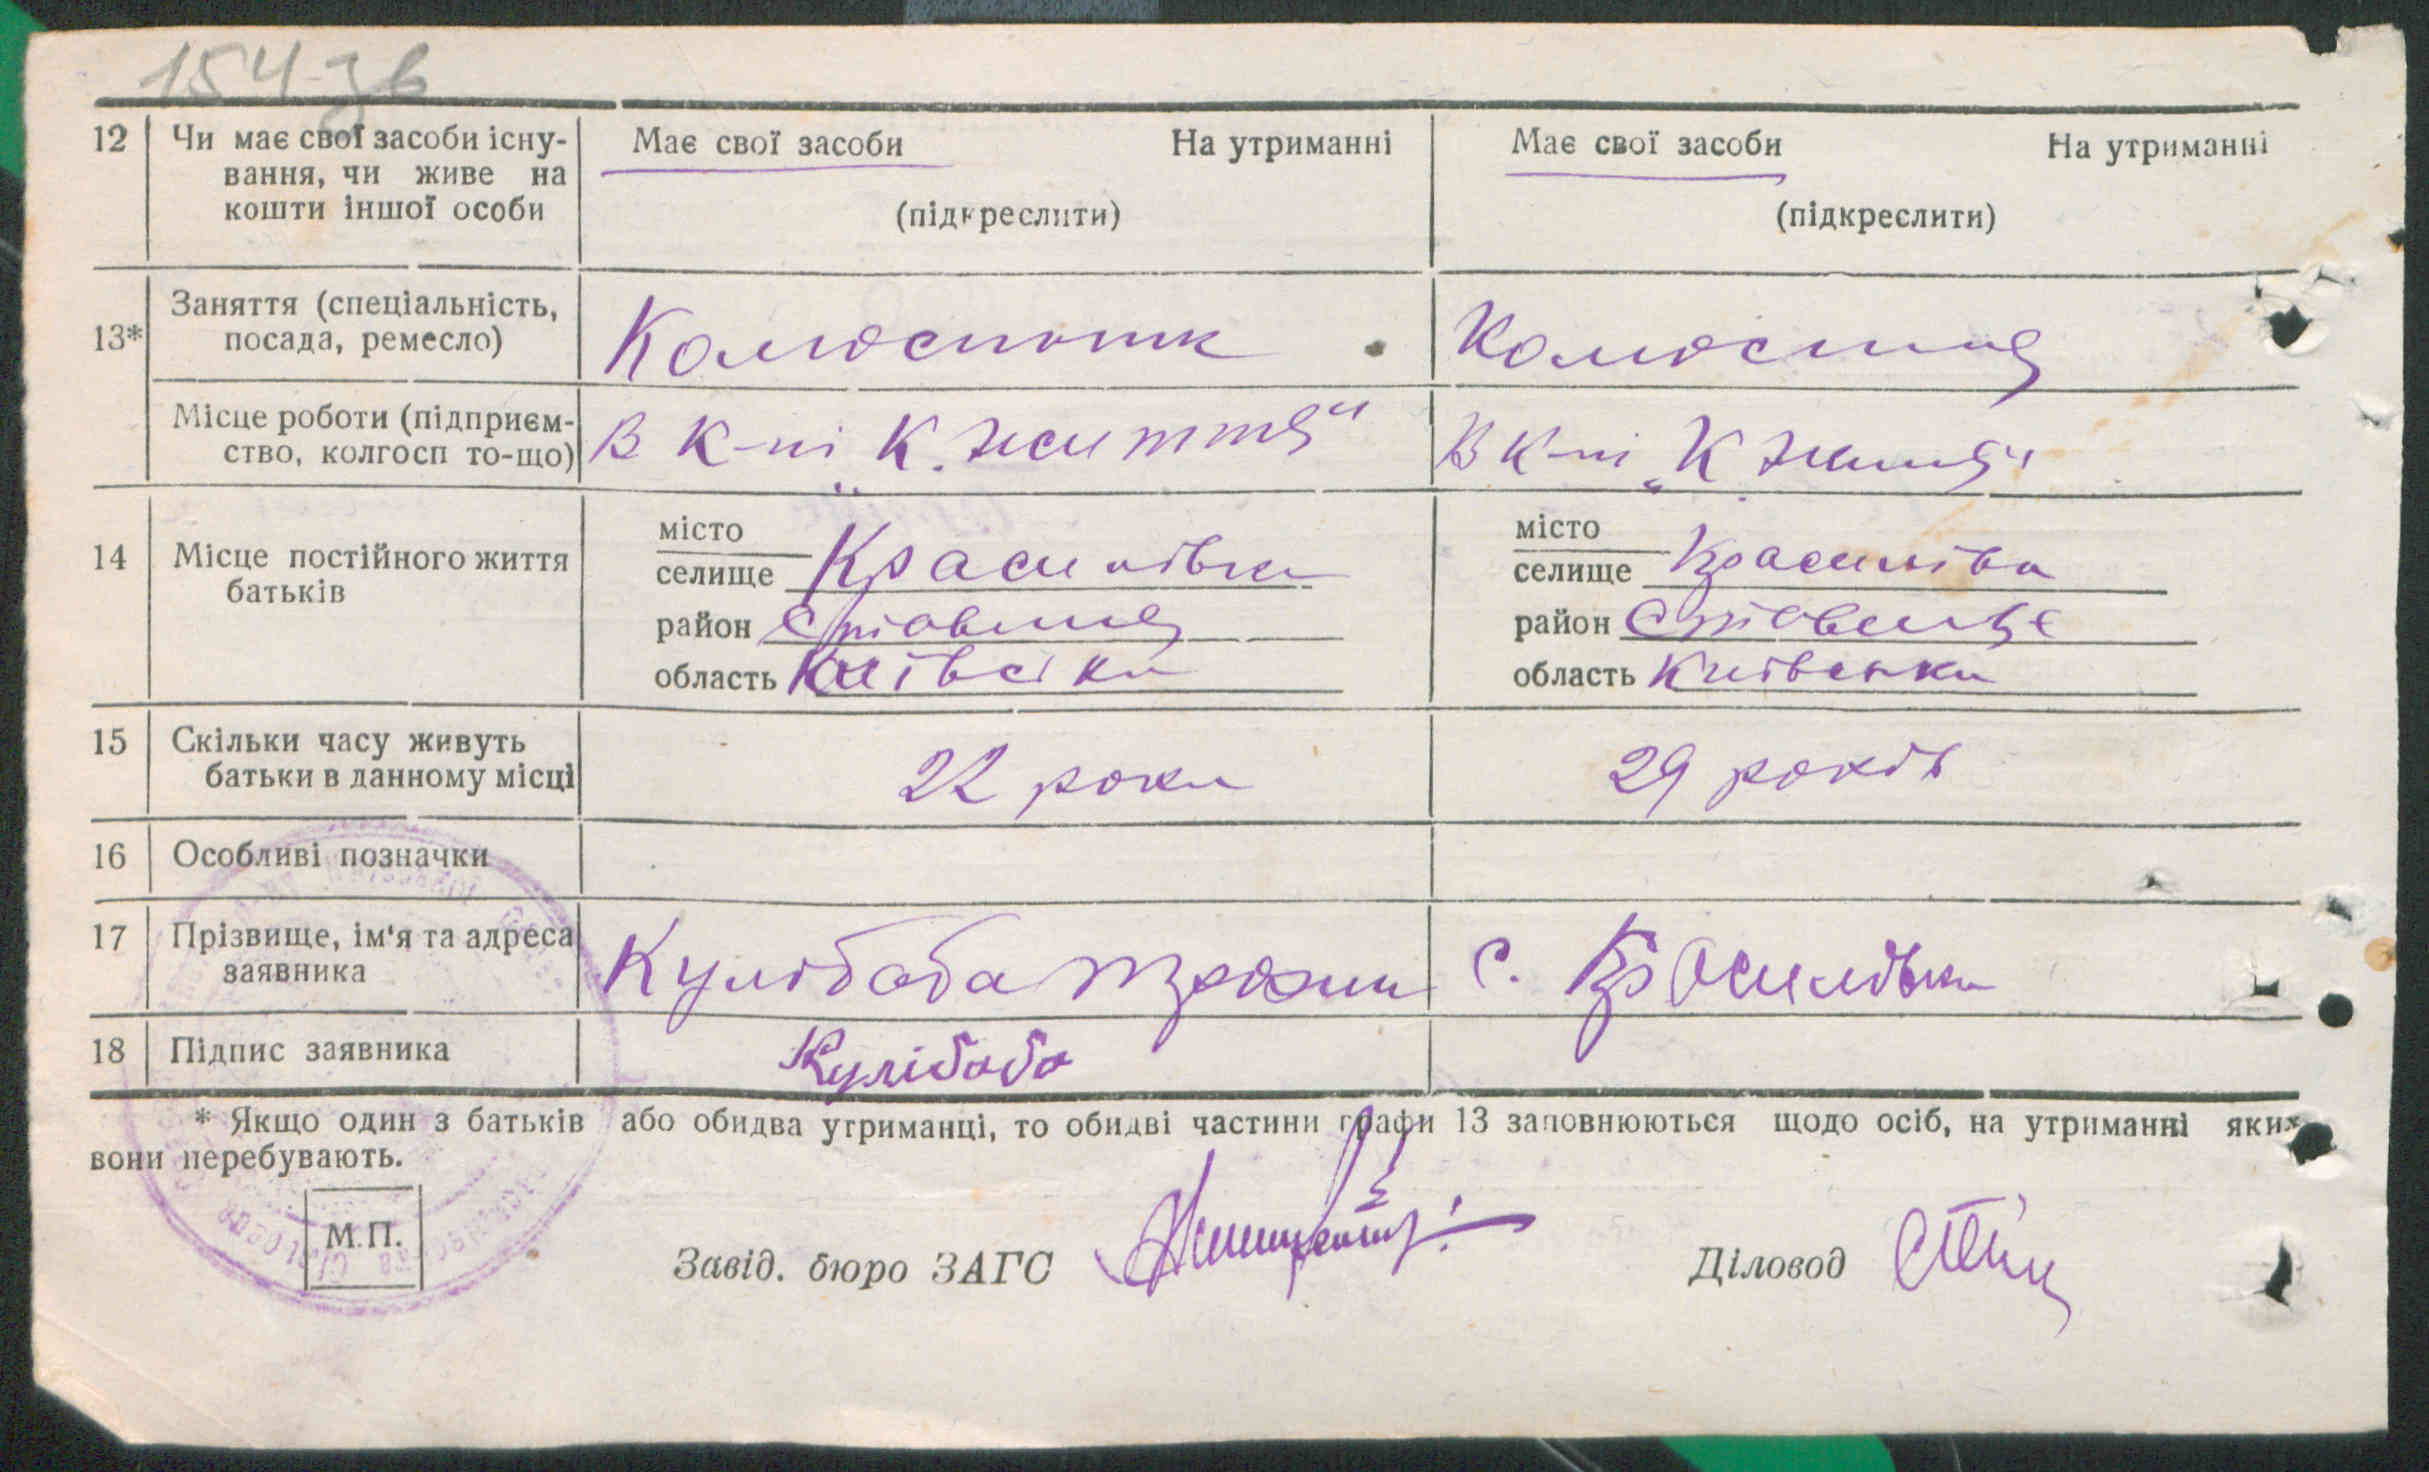 154 зв
12 Чи має свої засоби існу- Має свої засоби На утриманні Має свої засоби На утриманні
вання, чи живе на
кошти іншої особи (підкреслити) (підкреслити)
13* Заняття (спеціальність,
посада, ремесло) Колгоспник Колгоспниця
Місце роботи (підприєм-
ство, колгосп то-що) В к-пі „К. життя" В к-пі „К життя"
14 Місце постійного життя
батьків
місто місто
селище Красилівка селище Красилівка
район Ставище район Ставище
область Київська область Київська
15 Скільки часу живуть
батьки в данному місці 22 роки 29 років
16 Особливі позначки
17 Прізвище, ім'я та адреса
заявника Кулібаба с. Красилівка
18 Підпис заявника Кулібаба
* Якщо один з батьків або обидва утриманці, то обидві частини графи 13 заповнюються щодо осіб, на утриманні яких
вони перебувають.
М.П.
Завід. бюро ЗАГС Діловод